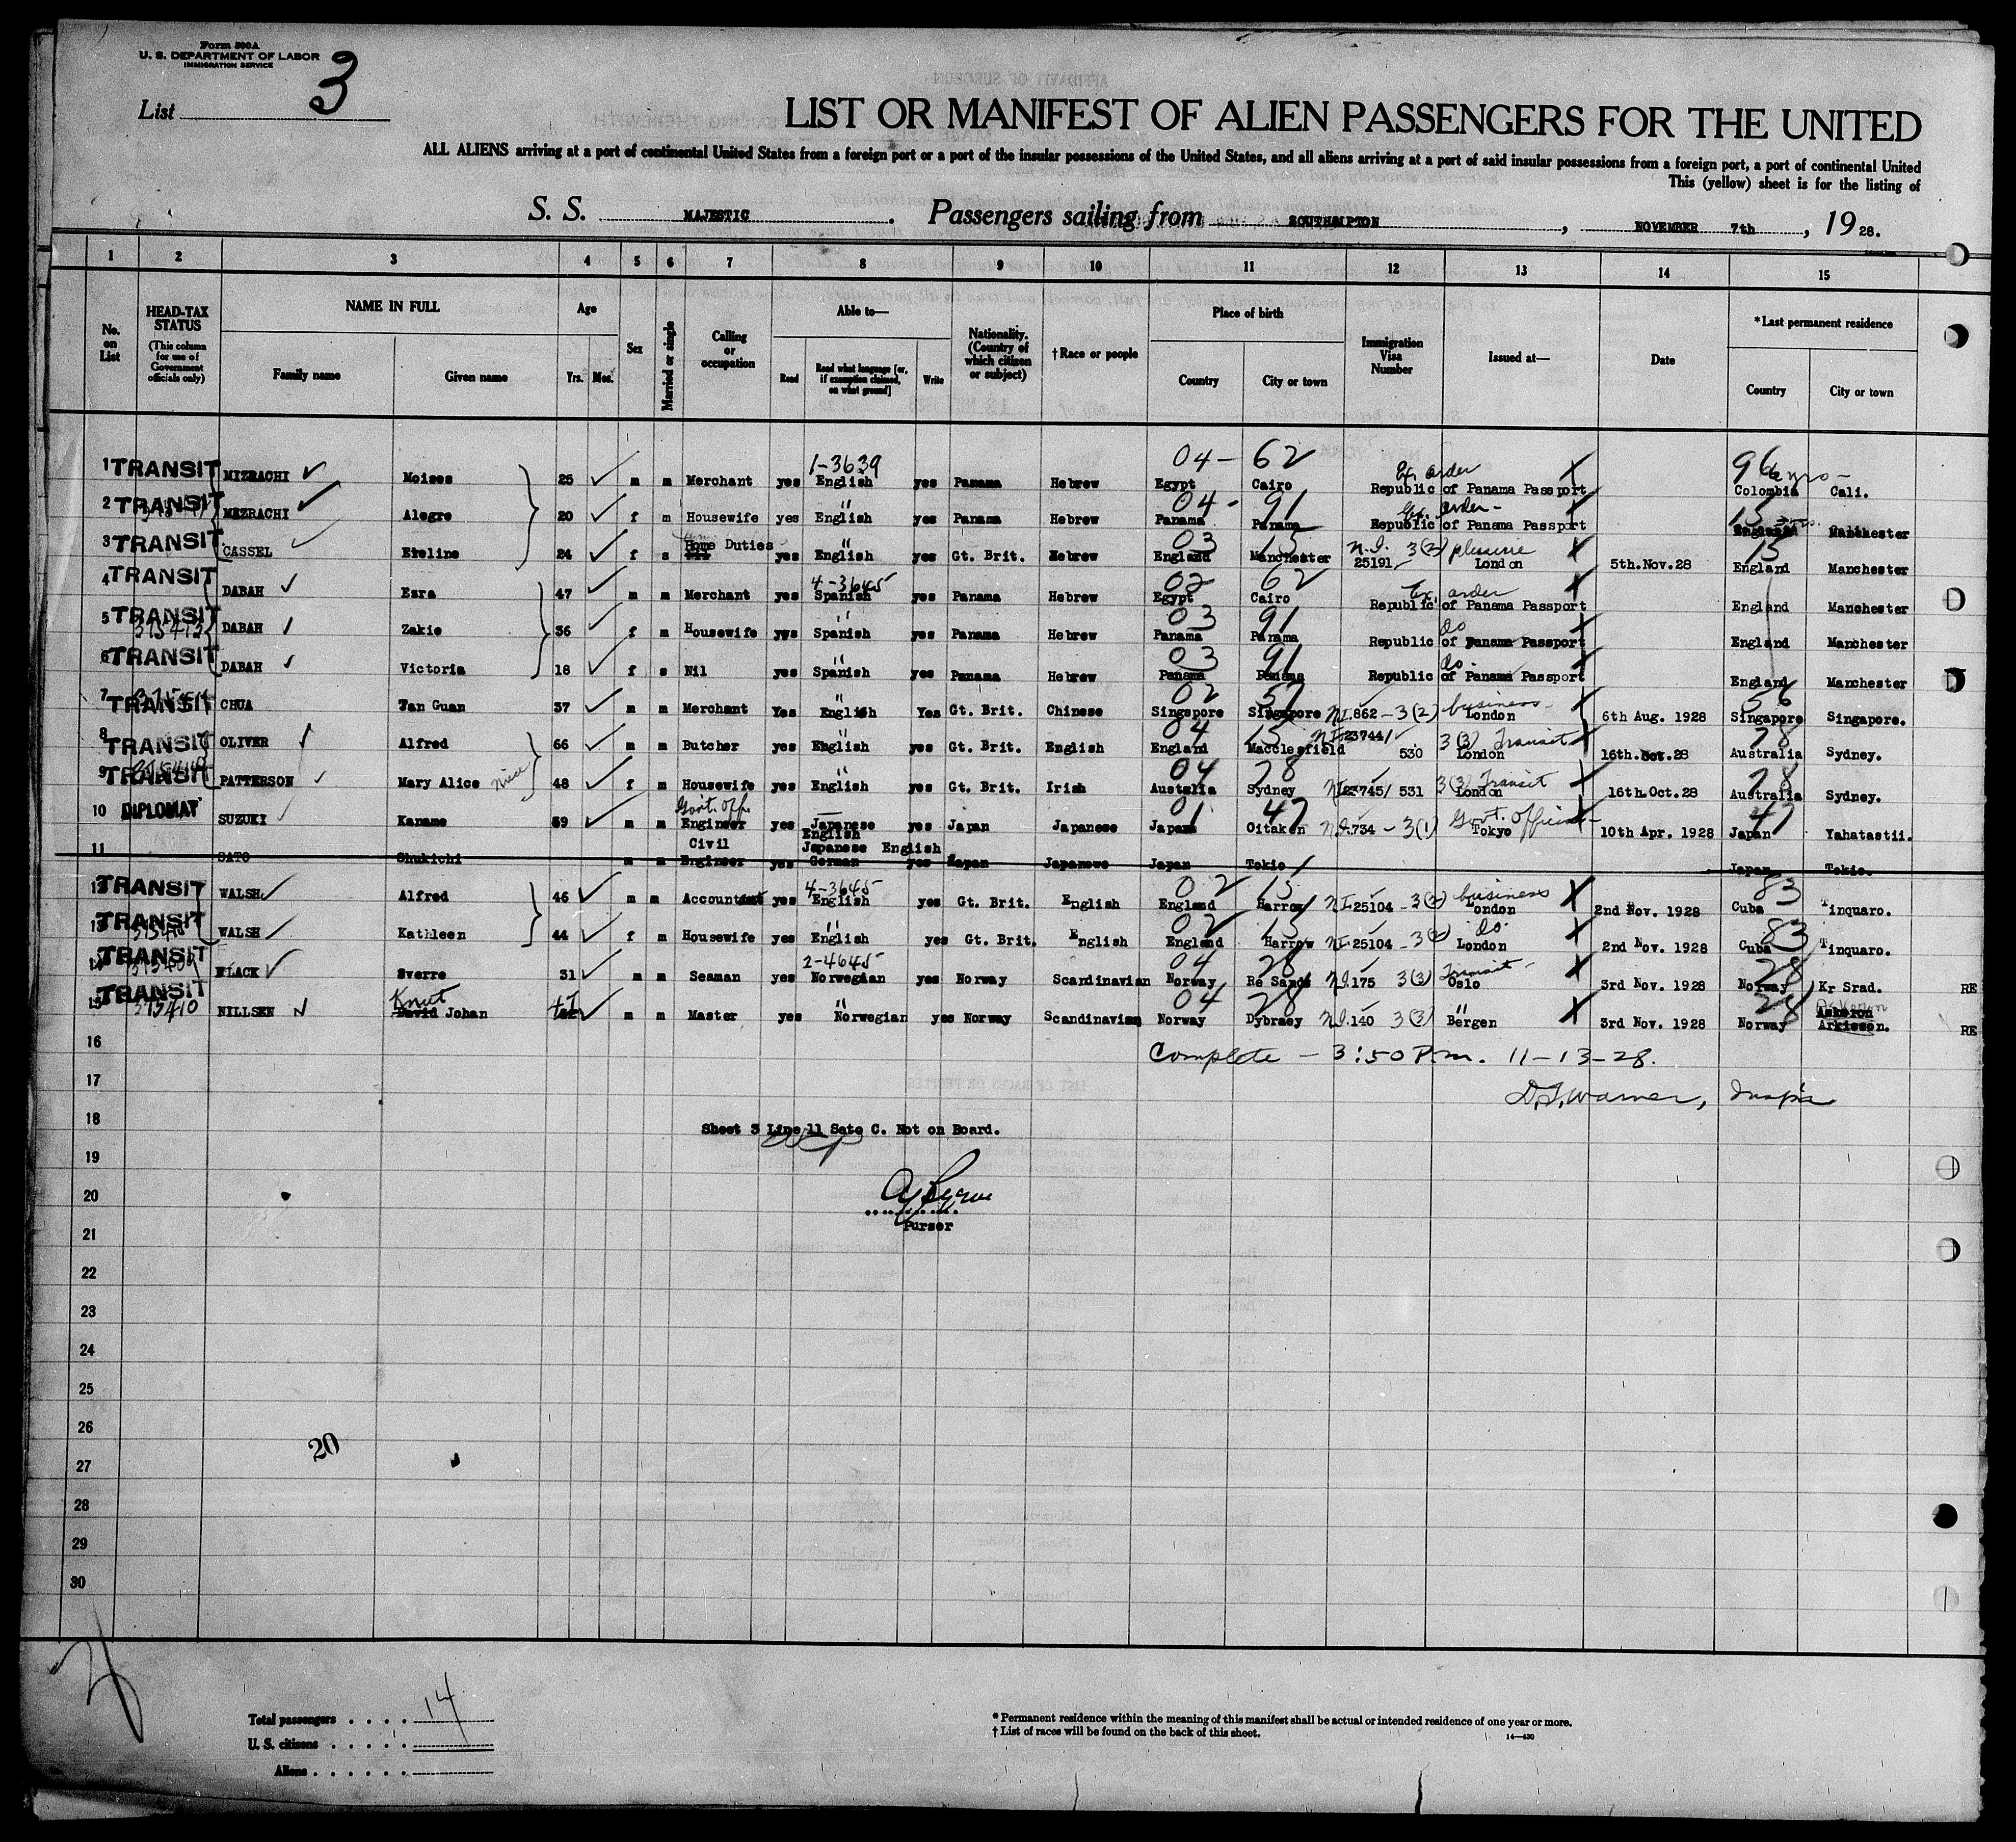 Form 500A
U. S. DEPARTMENT OF LABOR
IMMIGRATION SERVICE
List 3
LIST OR MANIFEST OF ALIEN PASSENGERS FOR THE UNITED
ALL ALIENS arriving at a port of continental United States from a foreign port or a port of the insular possessions of the United States, and all aliens arriving at a port of said insular possessions from a foreign port, a port of continental United
This (yellow) sheet is for the listing of
S. S. MAJESTIC. Passengers sailing from SOUTHAMPTON, NOVEMBER 7th, 1928.
1 2 3 4 5 6 7 8 9 10 11 12 13 14 15
No. on List
HEAD-TAX STATUS (This column for use of Government officials only)
NAME IN FULL Family name Given name
Age Yrs. Mos.
Sex
Married or single
Calling or occupation
Able to— Read Read what language [or, if exemption claimed, on what ground] Write
Nationality. (Country of which citizen or subject)
†Race or people
Place of birth Country City or town
Immigration Visa Number
Issued at—
Date
*Last permanent residence Country City or town
1-3639 04- 62 Ex. order 96
1 TRANSIT MIZRACHI Moises 25 m m Merchant yes English yes Panama Hebrew Egypt Cairo Republic of Panama Passport Colombia Cali.
" 04- 91 Ex. order-
2 TRANSIT MIZRACHI Alegre 20 f m Housewife yes English yes Panama Hebrew Panama Panama Republic of Panama Passport Manchester
" 03 15 N.I. 3(2) pleasure 15
3 TRANSIT CASSEL Eveline 24 f s Home Duties yes English yes Gt. Brit. Hebrew England Manchester 25191 London 5th.Nov.28 England Manchester
4-3645 02 62 Ex. order
4 TRANSIT DABAH Ezra 47 m m Merchant yes Spanish yes Panama Hebrew Egypt Cairo Republic of Panama Passport England Manchester
" 03 91 do
5 TRANSIT DABAH Zakie 36 f m Housewife yes Spanish yes Panama Hebrew Panama Panama Republic of Panama Passport England Manchester
" 03 91 do.
6 TRANSIT DABAH Victoria 18 f s Nil yes Spanish yes Panama Hebrew Panama Panama Republic of Panama Passport England Manchester
" 02 57 business 56
7 TRANSIT CHUA Tan Guan 37 m m Merchant Yes English Yes Gt. Brit. Chinese Singapore Singapore N.I.862 - 3(2) London 6th Aug. 1928 Singapore Singapore.
" 04 15 N.I.23744/ 3(3) Transit 78
8 TRANSIT OLIVER Alfred 66 m m Butcher yes English yes Gt. Brit. English England Macclesfield 530 London 16th.Oct.28 Australia Sydney.
" 04 78 3(3) Transit 78
9 TRANSIT PATTERSON Mary Alice niece 48 f m Housewife yes English yes Gt. Brit. Irish Australia Sydney N.I.23745/ 531 London 16th.Oct.28 Australia Sydney.
Govt. Off. 01 47 Govt. Official- 47
10 DIPLOMAT SUZUKI Kaname 39 m m Engineer yes Japanese English yes Japan Japanese Japan Oitaken N.I.734 - 3(1) Tokyo 10th Apr. 1928 Japan Yahatastii.
11 SATO Shukichi m m Civil Engineer yes Japanese English German yes Japan Japanese Japan Tokio Japan Tokio.
4-3645 02 15 business 83
12 TRANSIT WALSH Alfred 46 m m Accountant yes English yes Gt. Brit. English England Harrow N.I.25104 - 3(2) London 2nd Nov. 1928 Cuba Tinquaro.
" 02 15 do. 83
13 TRANSIT WALSH Kathleen 44 f m Housewife yes English yes Gt. Brit. English England Harrow N.I.25104 - 3(2) London 2nd Nov. 1928 Cuba Tinquaro.
2-4645 04 28 Transit- 28
14 TRANSIT FLACK Sverre 31 m m Seaman yes Norwegian yes Norway Scandinavian Norway Re Sande N.I.175 3(3) Oslo 3rd Nov. 1928 Norway Kr Srad. RE
Knut " 04 28 " 28
15 TRANSIT 373410 NILLSEN David Johan m m Master yes Norwegian yes Norway Scandinavian Norway Dybraey N.I.140 3(3) Bergen 3rd Nov. 1928 Norway RE
16 Complete - 3:50 P.m. 11-13-28.
17 D.T. Warner, Insp'r
18 Sheet 3 Line 11 Sato C. Not on Board.
19
20
21 Purser
22
23
24
25
26
20
27
28
29
30
Total passengers . . . . 14
U. S. citizens . . . . .
Aliens . . . . . .
* Permanent residence within the meaning of this manifest shall be actual or intended residence of one year or more.
† List of races will be found on the back of this sheet.
14—430